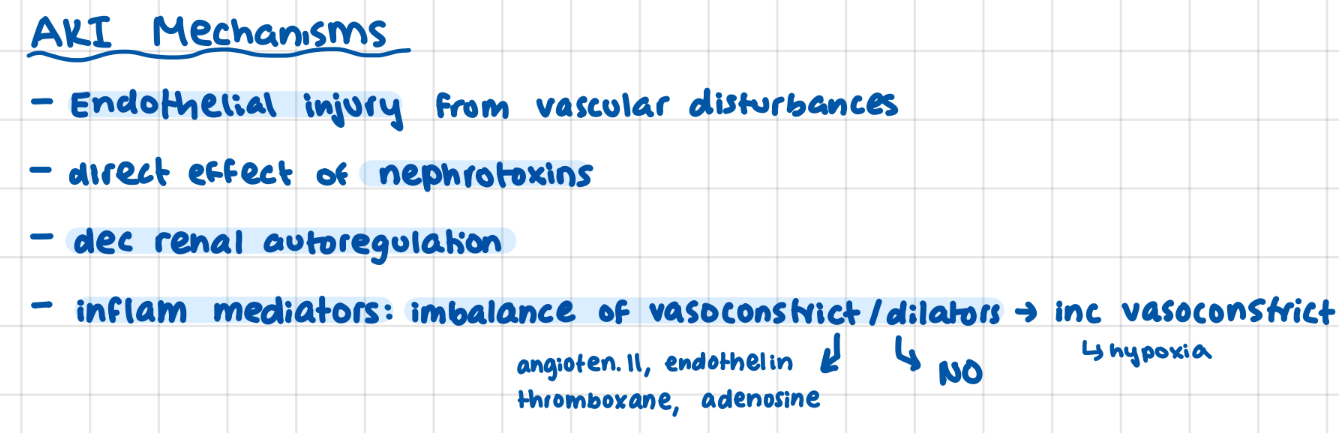 AKI Mechanisms
- Endothelial injury from vascular disturbances
- direct effect of nephrotoxins
- dec renal autoregulation
- inflam mediators: imbalance of vasoconstrict/dilators → inc vasoconstrict
↳ hypoxia
angioten. II, endothelin ↙ ↳ NO
thromboxane, adenosine